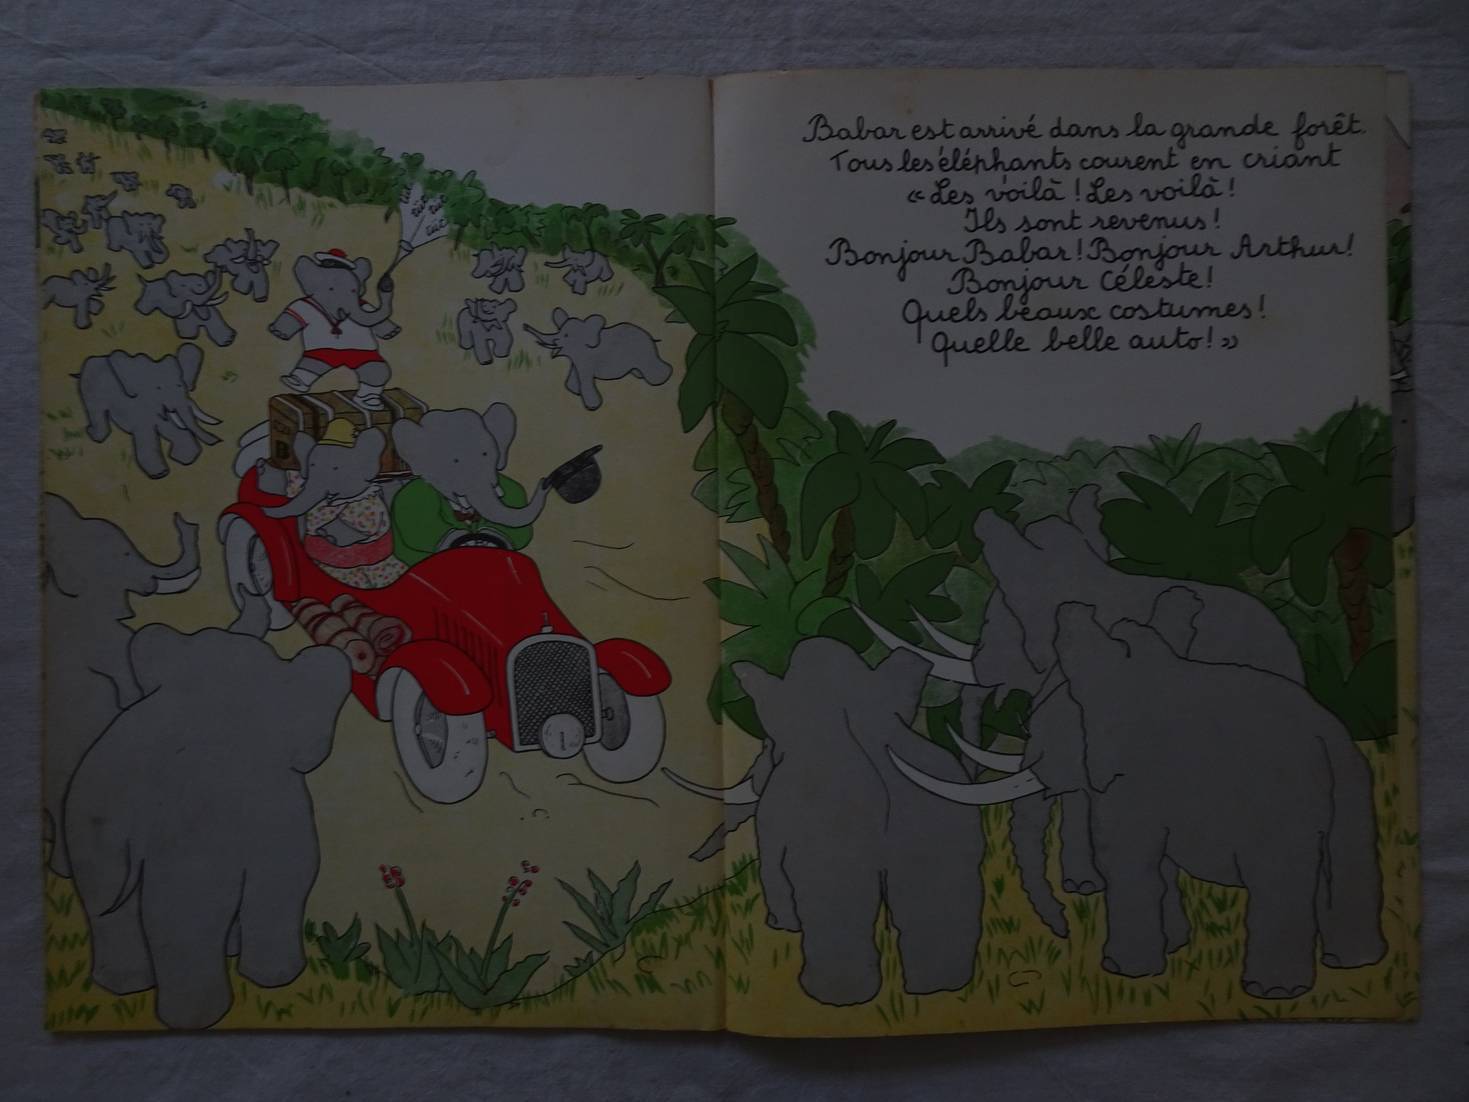 tut
tut
tut
tut
Babar est arrivé dans la grande forêt.
Tous les éléphants courent en criant
« Les voilà ! Les voilà !
Ils sont revenus !
Bonjour Babar ! Bonjour Arthur !
Bonjour Céleste !
Quels beaux costumes !
Quelle belle auto ! »
B
1